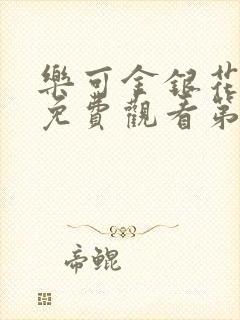 樂可金銀花
免費觀看第
帝鯤